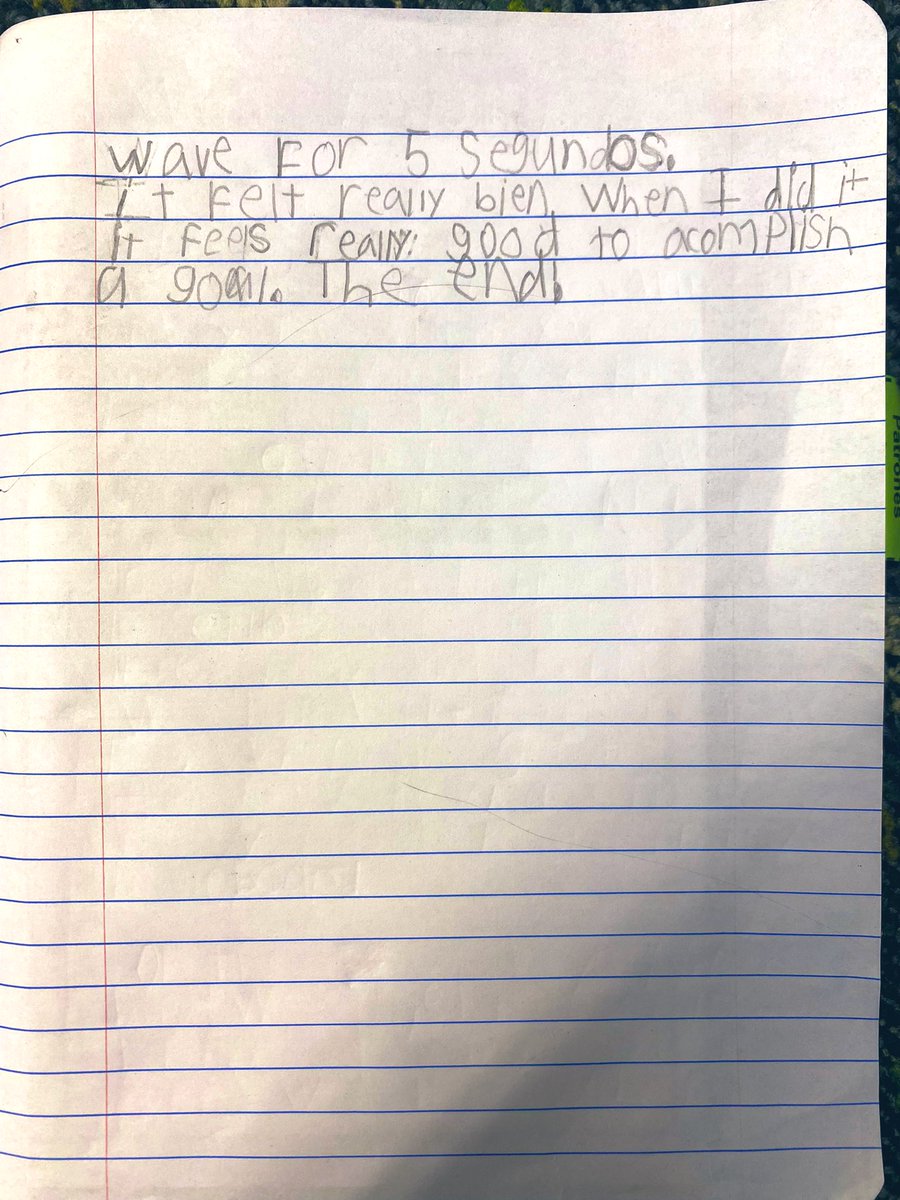 wave For 5 Segundos.
It Felt really bien, when I did it
it Feels really good to acomplish
a goal. The end!
Patrones